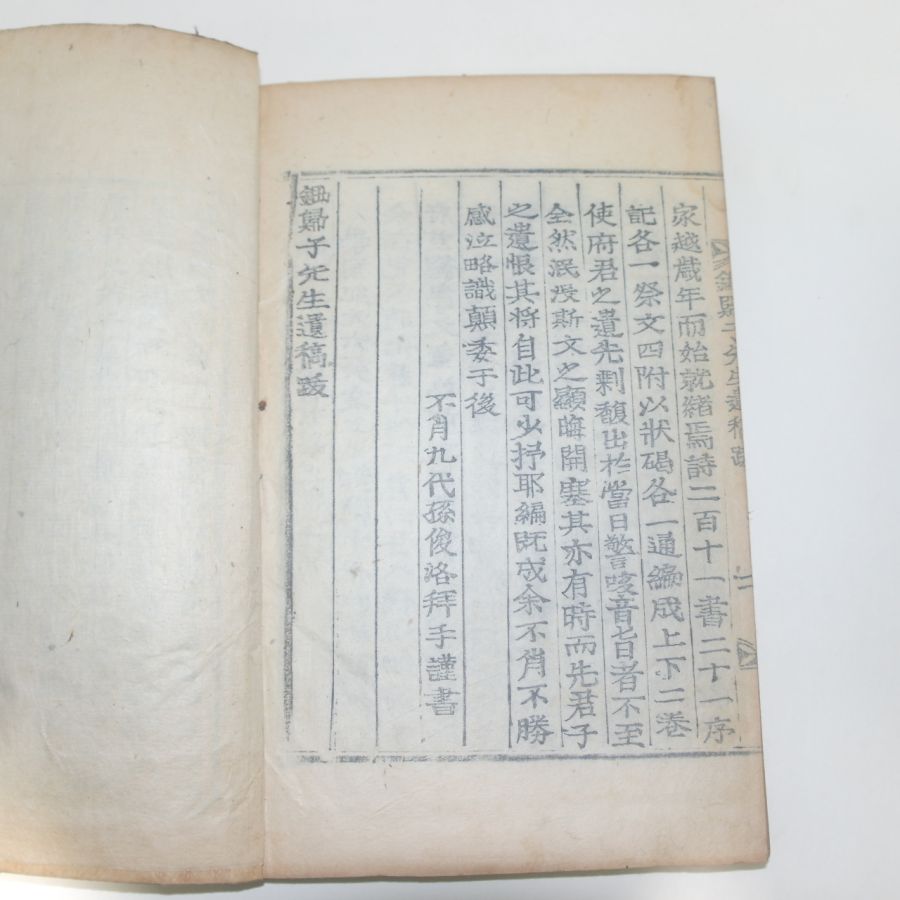 家越歲年而始就緖焉詩二百十一書二十一序
記各一祭文四附以狀碣各一通編成上下二卷
使府君之遺光剩馥出於當日警咳音旨者不至
全然泯沒斯文之顯晦開塞其亦有時而先君子
之遺恨其將自此可少抒耶編旣成余不肖不勝
感泣略識顚委于後
不肖九代孫俊洛拜手謹書
鋤歸子先生遺稿跋